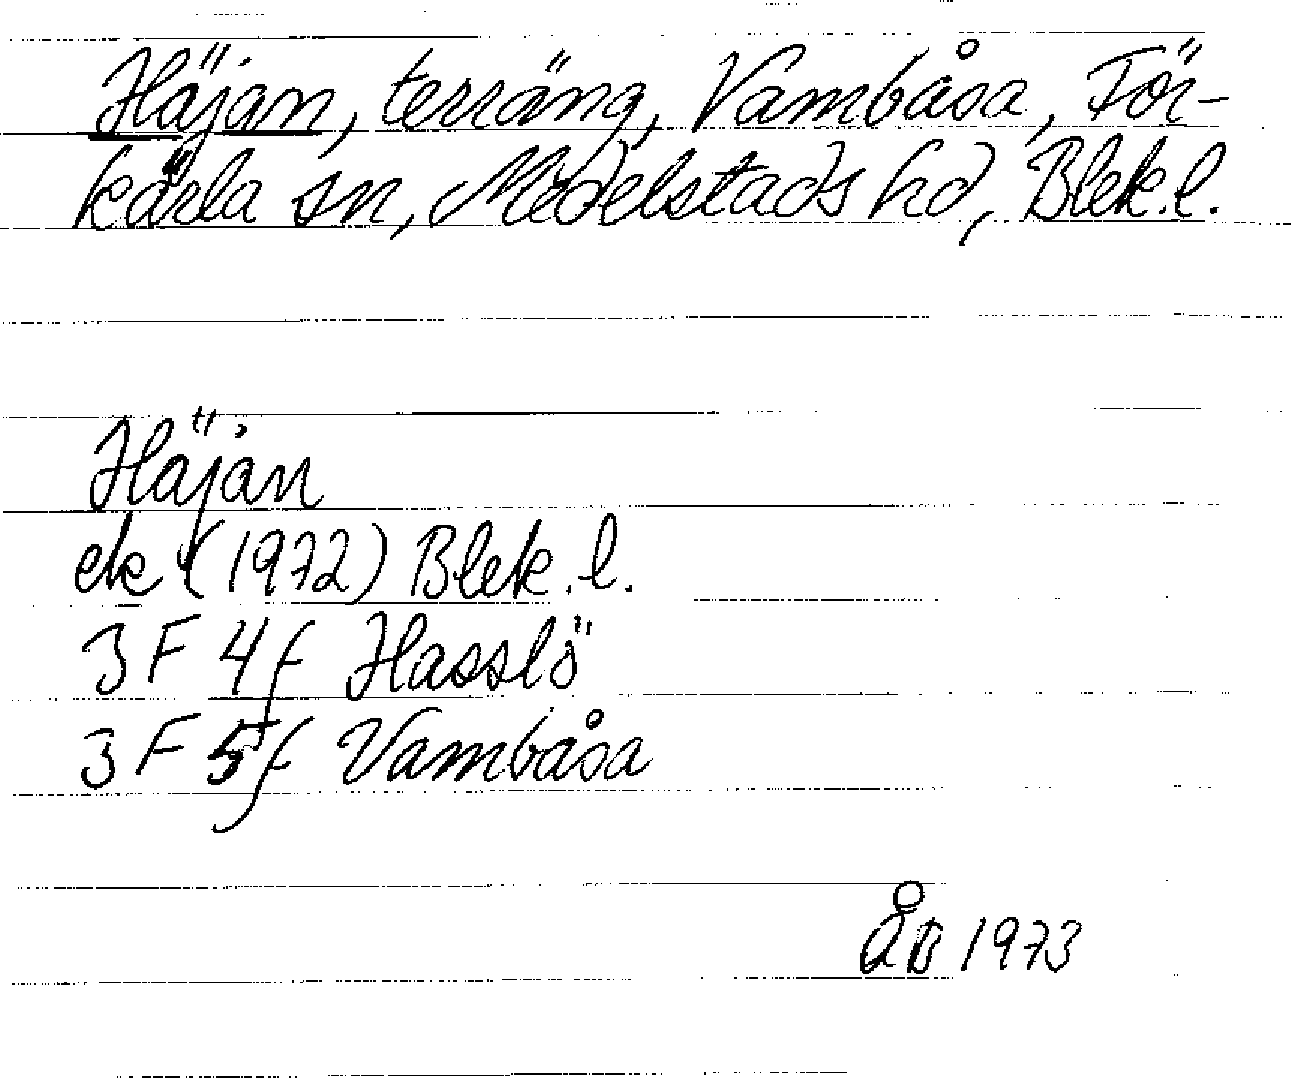 Häjan, terräng, Vambåsa, För-
kärla sn, Medelstads hd, Blek.l.
Häjan
ek (1972) Blek.l.
3F 4f Hasslö
3F 5f Vambåsa
ÅB 1973